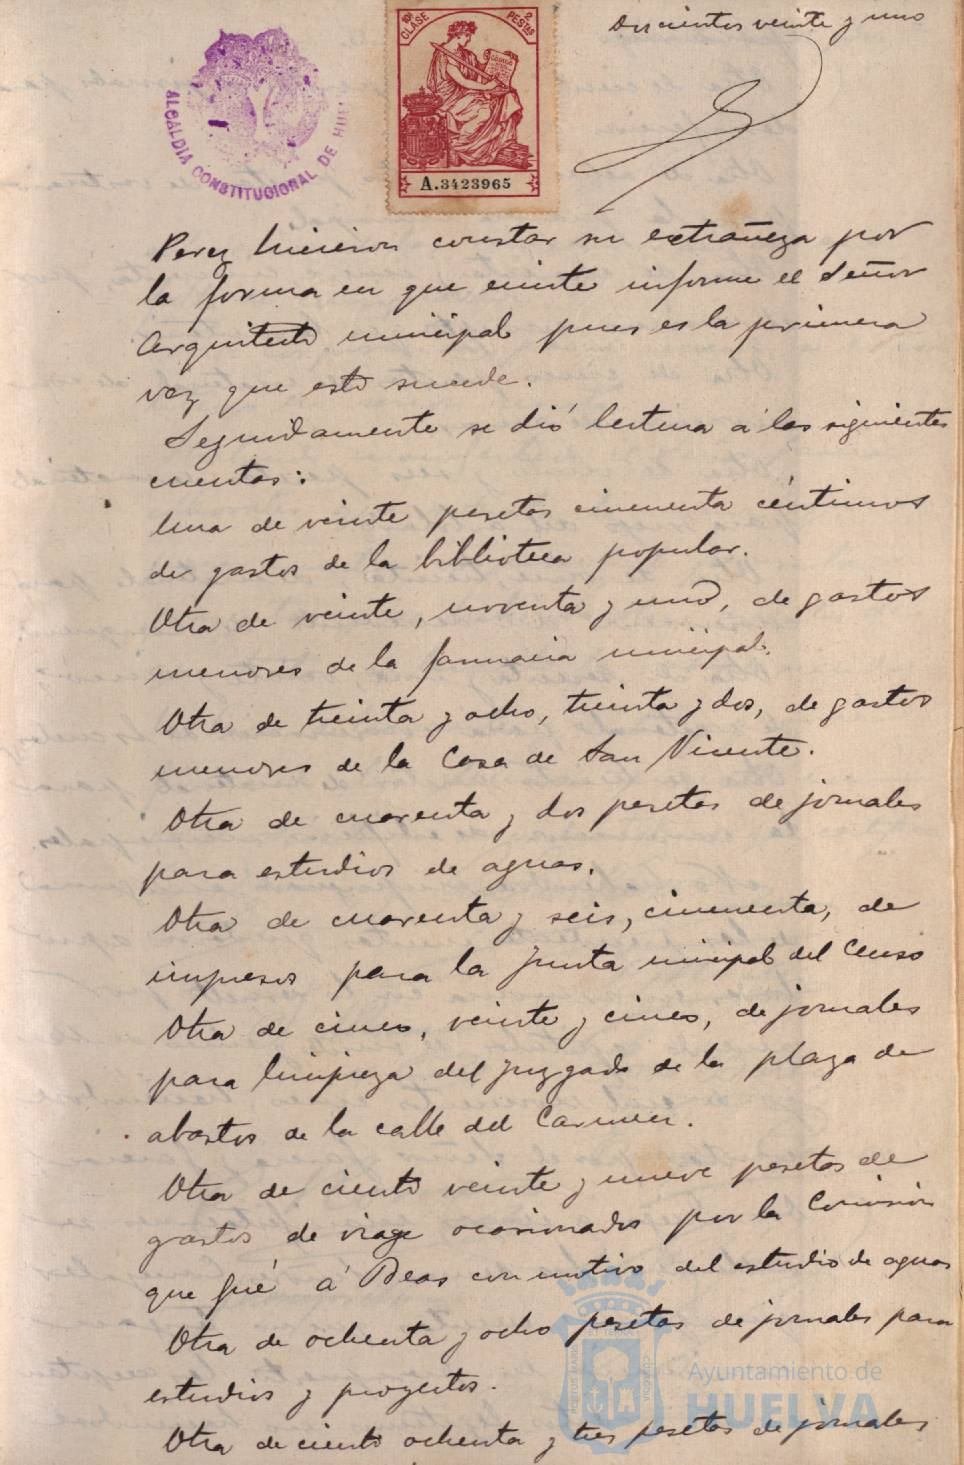 Doscientos veinte y uno
ALCALDIA CONSTITUCIONAL DE HUEL
10ª CLASE 2 PESTAS
A.3423965
Perez hicieron constar su extrañeza por
la forma en que emite informe el Señor
Arquitecto municipal pues es la primera
vez que esto sucede.
Seguidamente se dió lectura á las siguientes
cuentas:
Una de veinte pesetas cincuenta céntimos
de gastos de la biblioteca popular.
Otra de veinte, noventa y uno, de gastos
menores de la farmacia municipal.
Otra de treinta y ocho, treinta y dos, de gastos
menores de la Casa de San Vicente.
Otra de cuarenta y dos pesetas de jornales
para estudios de aguas.
Otra de cuarenta y seis, cincuenta, de
impresos para la Junta municipal del Censo
Otra de cinco, veinte y cinco, de jornales
para limpieza del juzgado de la plaza de
abastos de la calle del Carmen.
Otra de ciento veinte y nueve pesetas de
gastos de viage ocasionados por la Comisión
que fué á Beas con motivo del estudio de aguas
Otra de ochenta y ocho pesetas de jornales para
estudios y proyectos.
Otra de ciento ochenta y tres pesetas de jornales
Ayuntamiento de
HUELVA